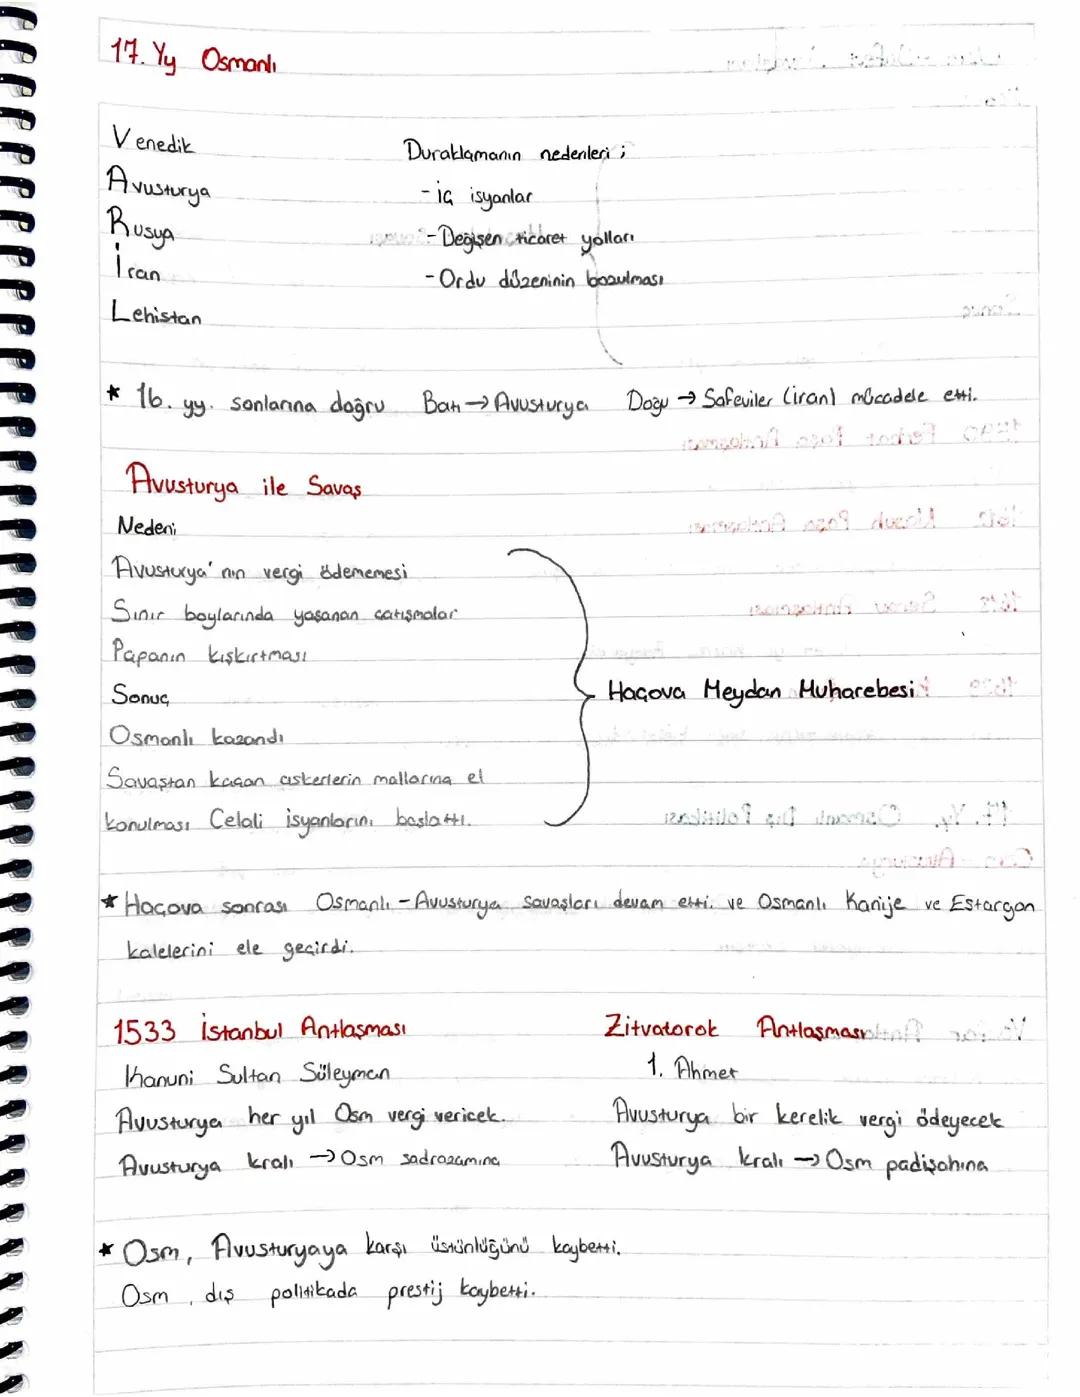 17. Yy Osmanlı
Venedik
Avusturya
Rusya
İran
Lehistan
Duraklamanın nedenleri ;
- iç isyanlar
- Değişen ticaret yolları
- Ordu düzeninin bozulması
* 16. yy. sonlarına doğru Batı → Avusturya Doğu → Safeviler (iran) mücadele etti.
Avusturya ile Savaş
Nedeni
Avusturya' nın vergi ödememesi
Sınır boylarında yaşanan çatışmalar
Papanın kışkırtması
Sonuç
Osmanlı kazandı
Savaştan kaçan askerlerin mallarına el
konulması Celali isyanlarını başlattı.
Haçova Meydan Muharebesi
* Haçova sonrası Osmanlı - Avusturya savaşları devam etti ve Osmanlı Kanije ve Estargon
kalelerini ele geçirdi.
1533 İstanbul Antlaşması
Kanuni Sultan Süleyman
Avusturya her yıl Osm vergi vericek.
Avusturya kralı → Osm sadrazamına
Zitvatorok Antlaşması
1. Ahmet
Avusturya bir kerelik vergi ödeyecek
Avusturya kralı → Osm padişahına
* Osm, Avusturyaya karşı üstünlüğünü kaybetti.
Osm, dış politikada prestij kaybetti.